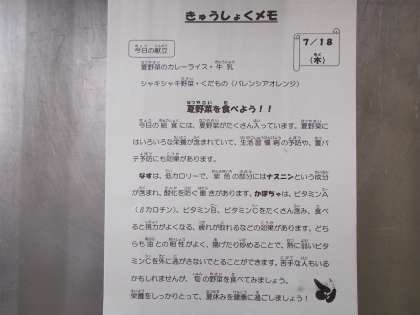 きゅうしょくメモ
7/18
(木)
今日の献立
夏野菜のカレーライス・牛乳
シャキシャキ野菜・くだもの(バレンシアオレンジ)
夏野菜を食べよう!!
今日の給食には、夏野菜がたくさん入っています。夏野菜に
はいろいろな栄養が含まれていて、生活習慣病の予防や、夏バ
テ予防にも効果があります。
なすは、低カロリーで、紫色の部分にはナスニンという成分
が含まれ、酸化を防ぐ働きがあります。かぼちゃは、ビタミンA
(βカロチン)、ビタミンB、ビタミンCをたくさん含み、食べ
ると視力がよくなる、疲れが取れるなどの効果があります。どち
らも油との相性がよく、揚げたり炒めることで、熱に弱いビタ
ミンCを外に逃がさないでとることができます。苦手な人もいる
かもしれませんが、旬の野菜を食べてみましょう。
栄養をしっかりとって、夏休みを健康に過ごしましょう!